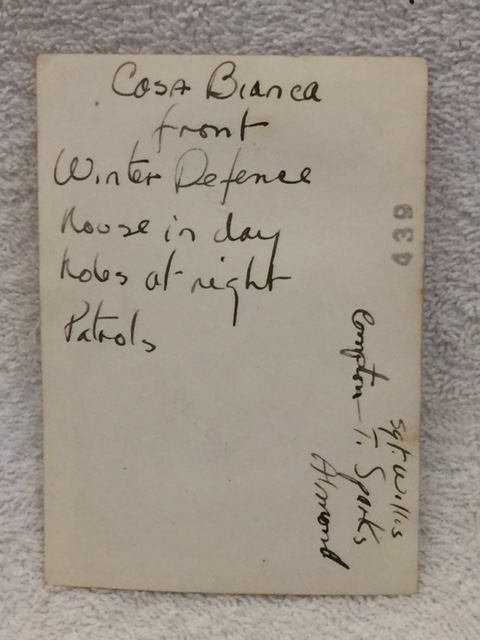 Casa Bianca
front
Winter Defence
House in day
Holes at night
Patrols
439
Sgt. Willis
Compton - T. Sparks
Almond